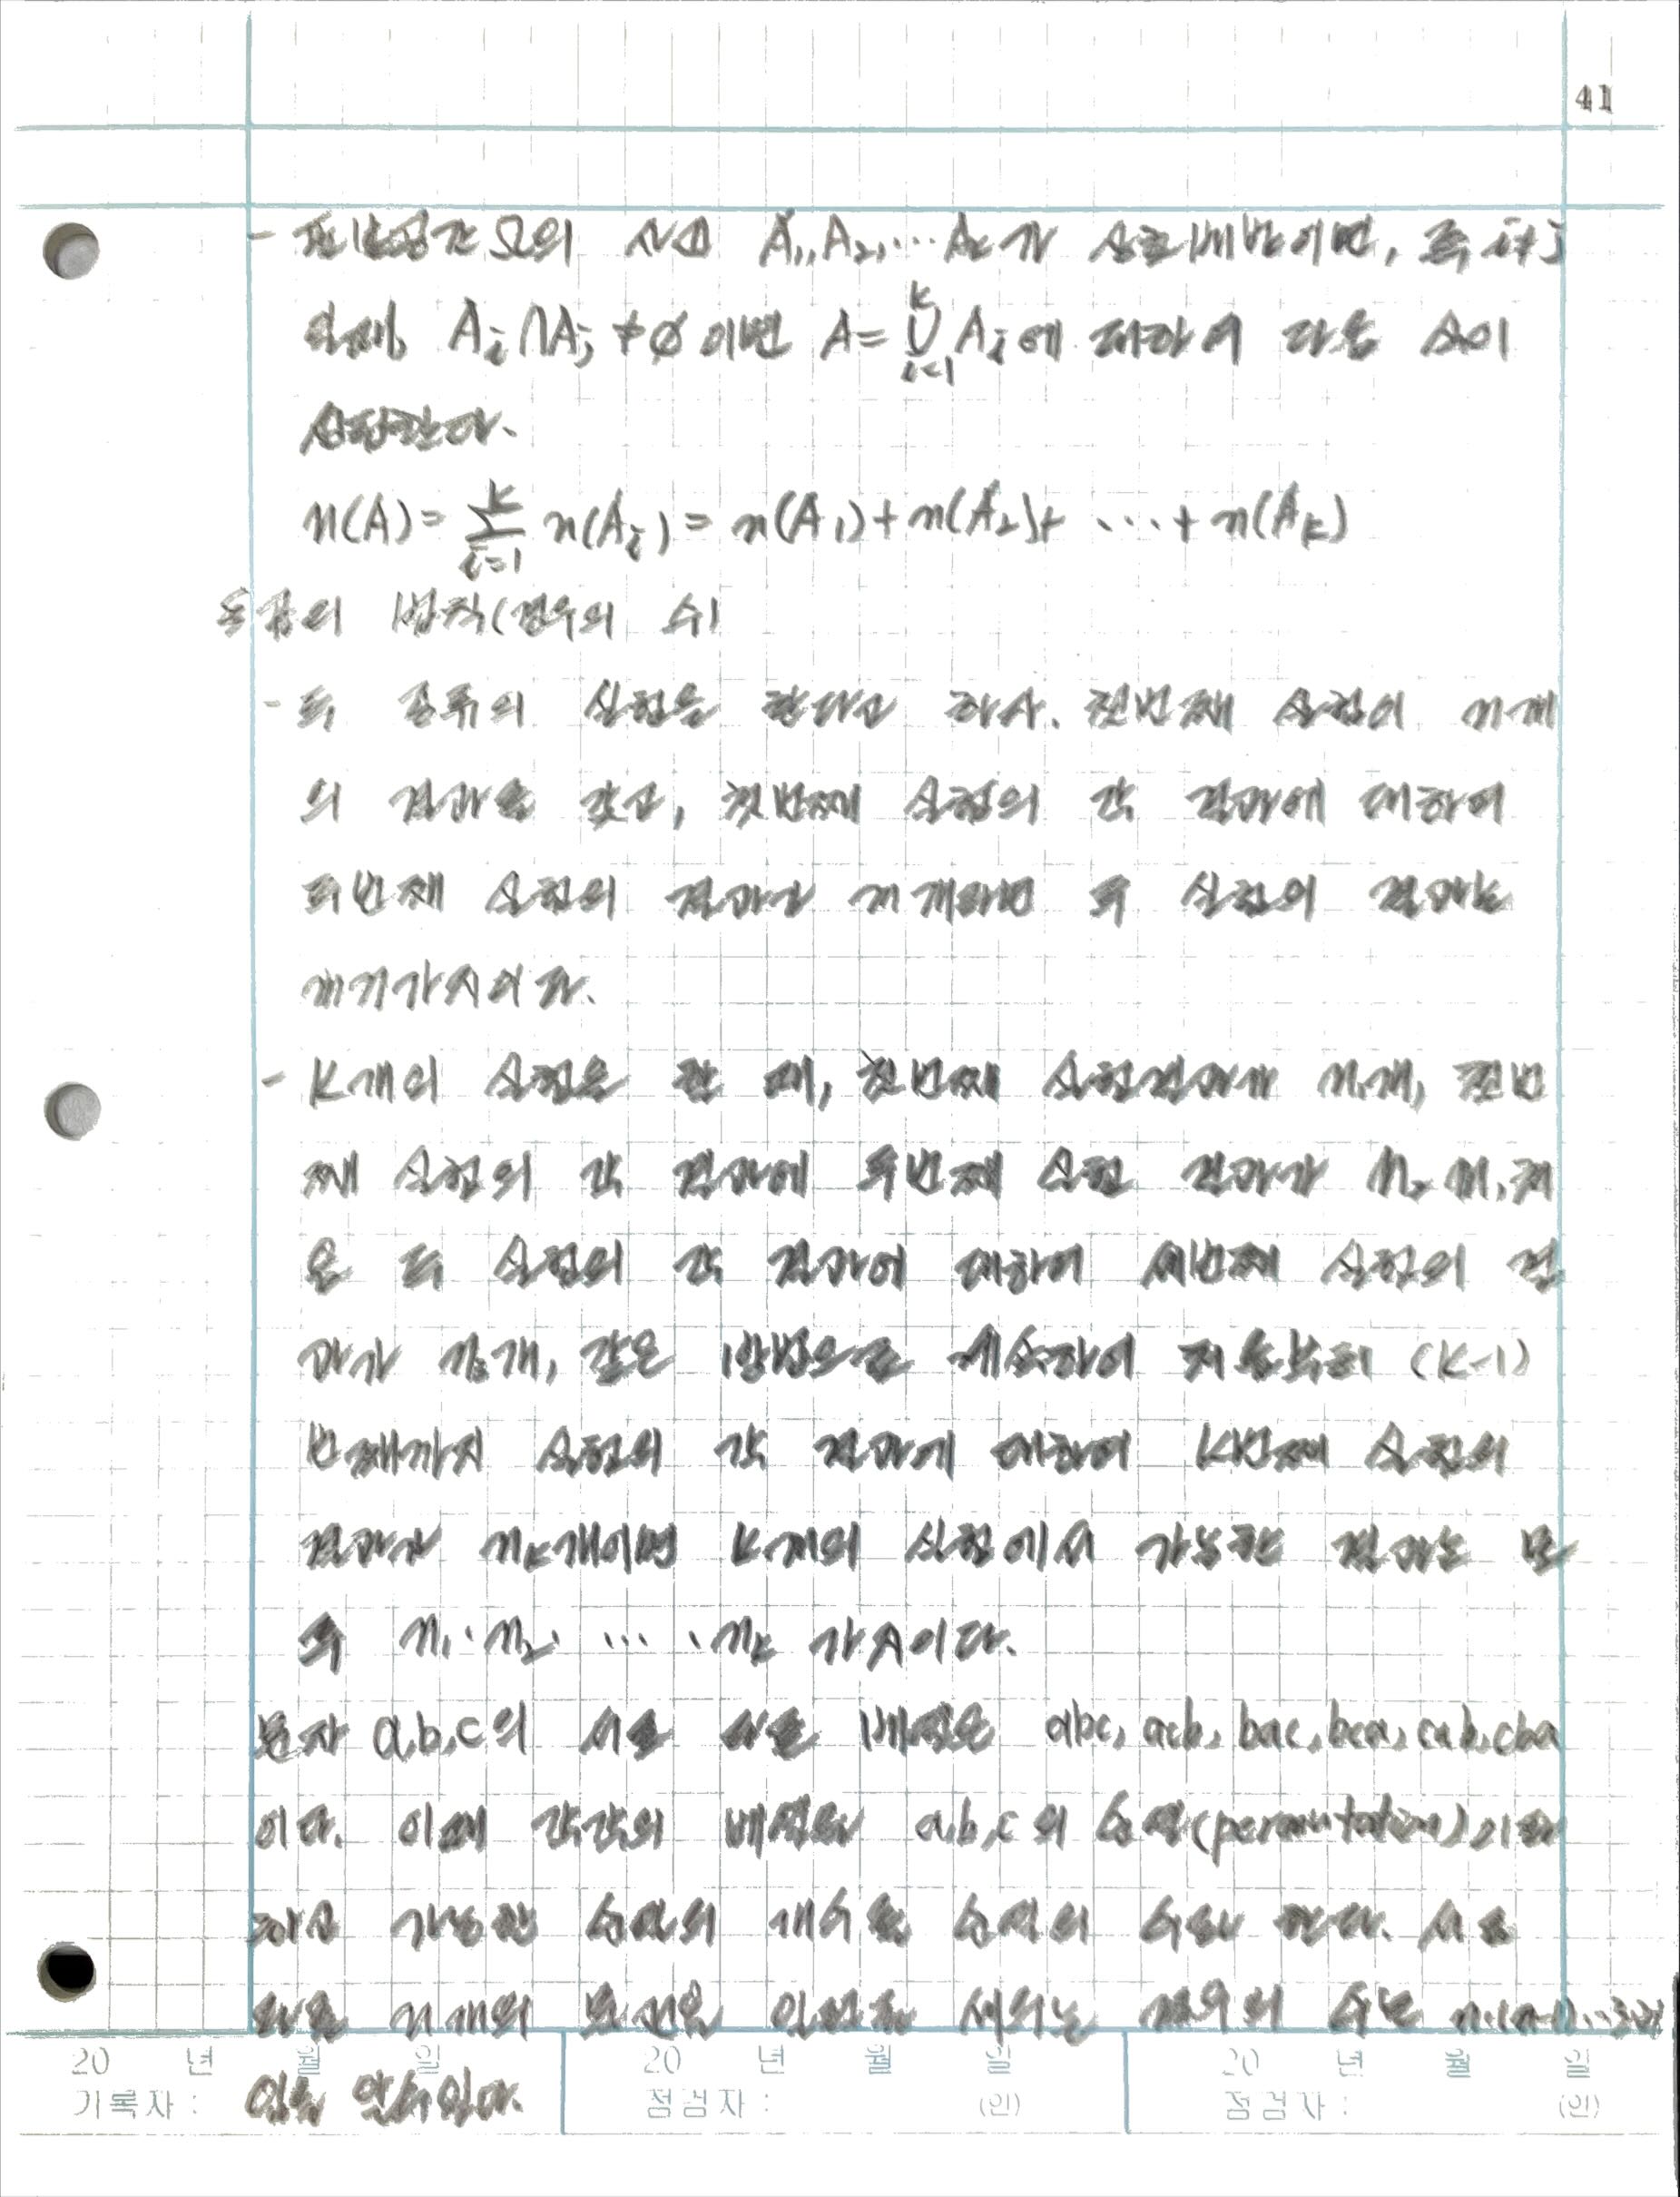 41
- 표본공간 Ω의 사건 A₁, A₂, … Aₖ가 상호배반이면, 즉 i≠j
일때 Aᵢ∩Aⱼ ≠ ∅ 이면 A = ⋃ᵢ₌₁ᵏ Aᵢ에 대하여 다음 식이
성립한다.
n(A) = ∑ᵢ₌₁ᵏ n(Aᵢ) = n(A₁) + n(A₂) + … + n(Aₖ)
곱의 법칙(경우의 수)
- 두 종류의 실험을 한다고 하자. 첫번째 실험이 n개
의 결과를 갖고, 첫번째 실험의 각 결과에 대하여
두번째 실험의 결과가 개라면 두 실험의 결과는
가지이다.
- K개의 실험을 할 때, 첫번째 실험결과가 n₁개, 첫번
째 실험의 각 결과에 두번째 실험 결과가 n₂
은 두 실험의 각 결과에 대하여 세번째 실험의 결
과가 개, 같은 방법으로 계속하여 (K-1)
번째까지 실험의 각 결과에 대하여 K번째 실험의
결과가 nₖ개이면 K개의 실험에서 가능한 결과는 모
두 n₁·n₂· … ·nₖ 가지이다.
문자 a,b,c의 서로 다른 배열은 abc, acb, bac, bca, cab, cba
이다. 이때 각각의 배열을 a,b,c의 순열(permutation)이라
하고 가능한 순열의 개수를 순열의 수라 한다. 서로
다른 n개의 물건을 일렬로 세우는 경우의 수는
임을 알수있다.
20 년 월 일 20 년 월 일 20 년 월 일
기록자 : 점검자 : (인) 점검자 : (인)